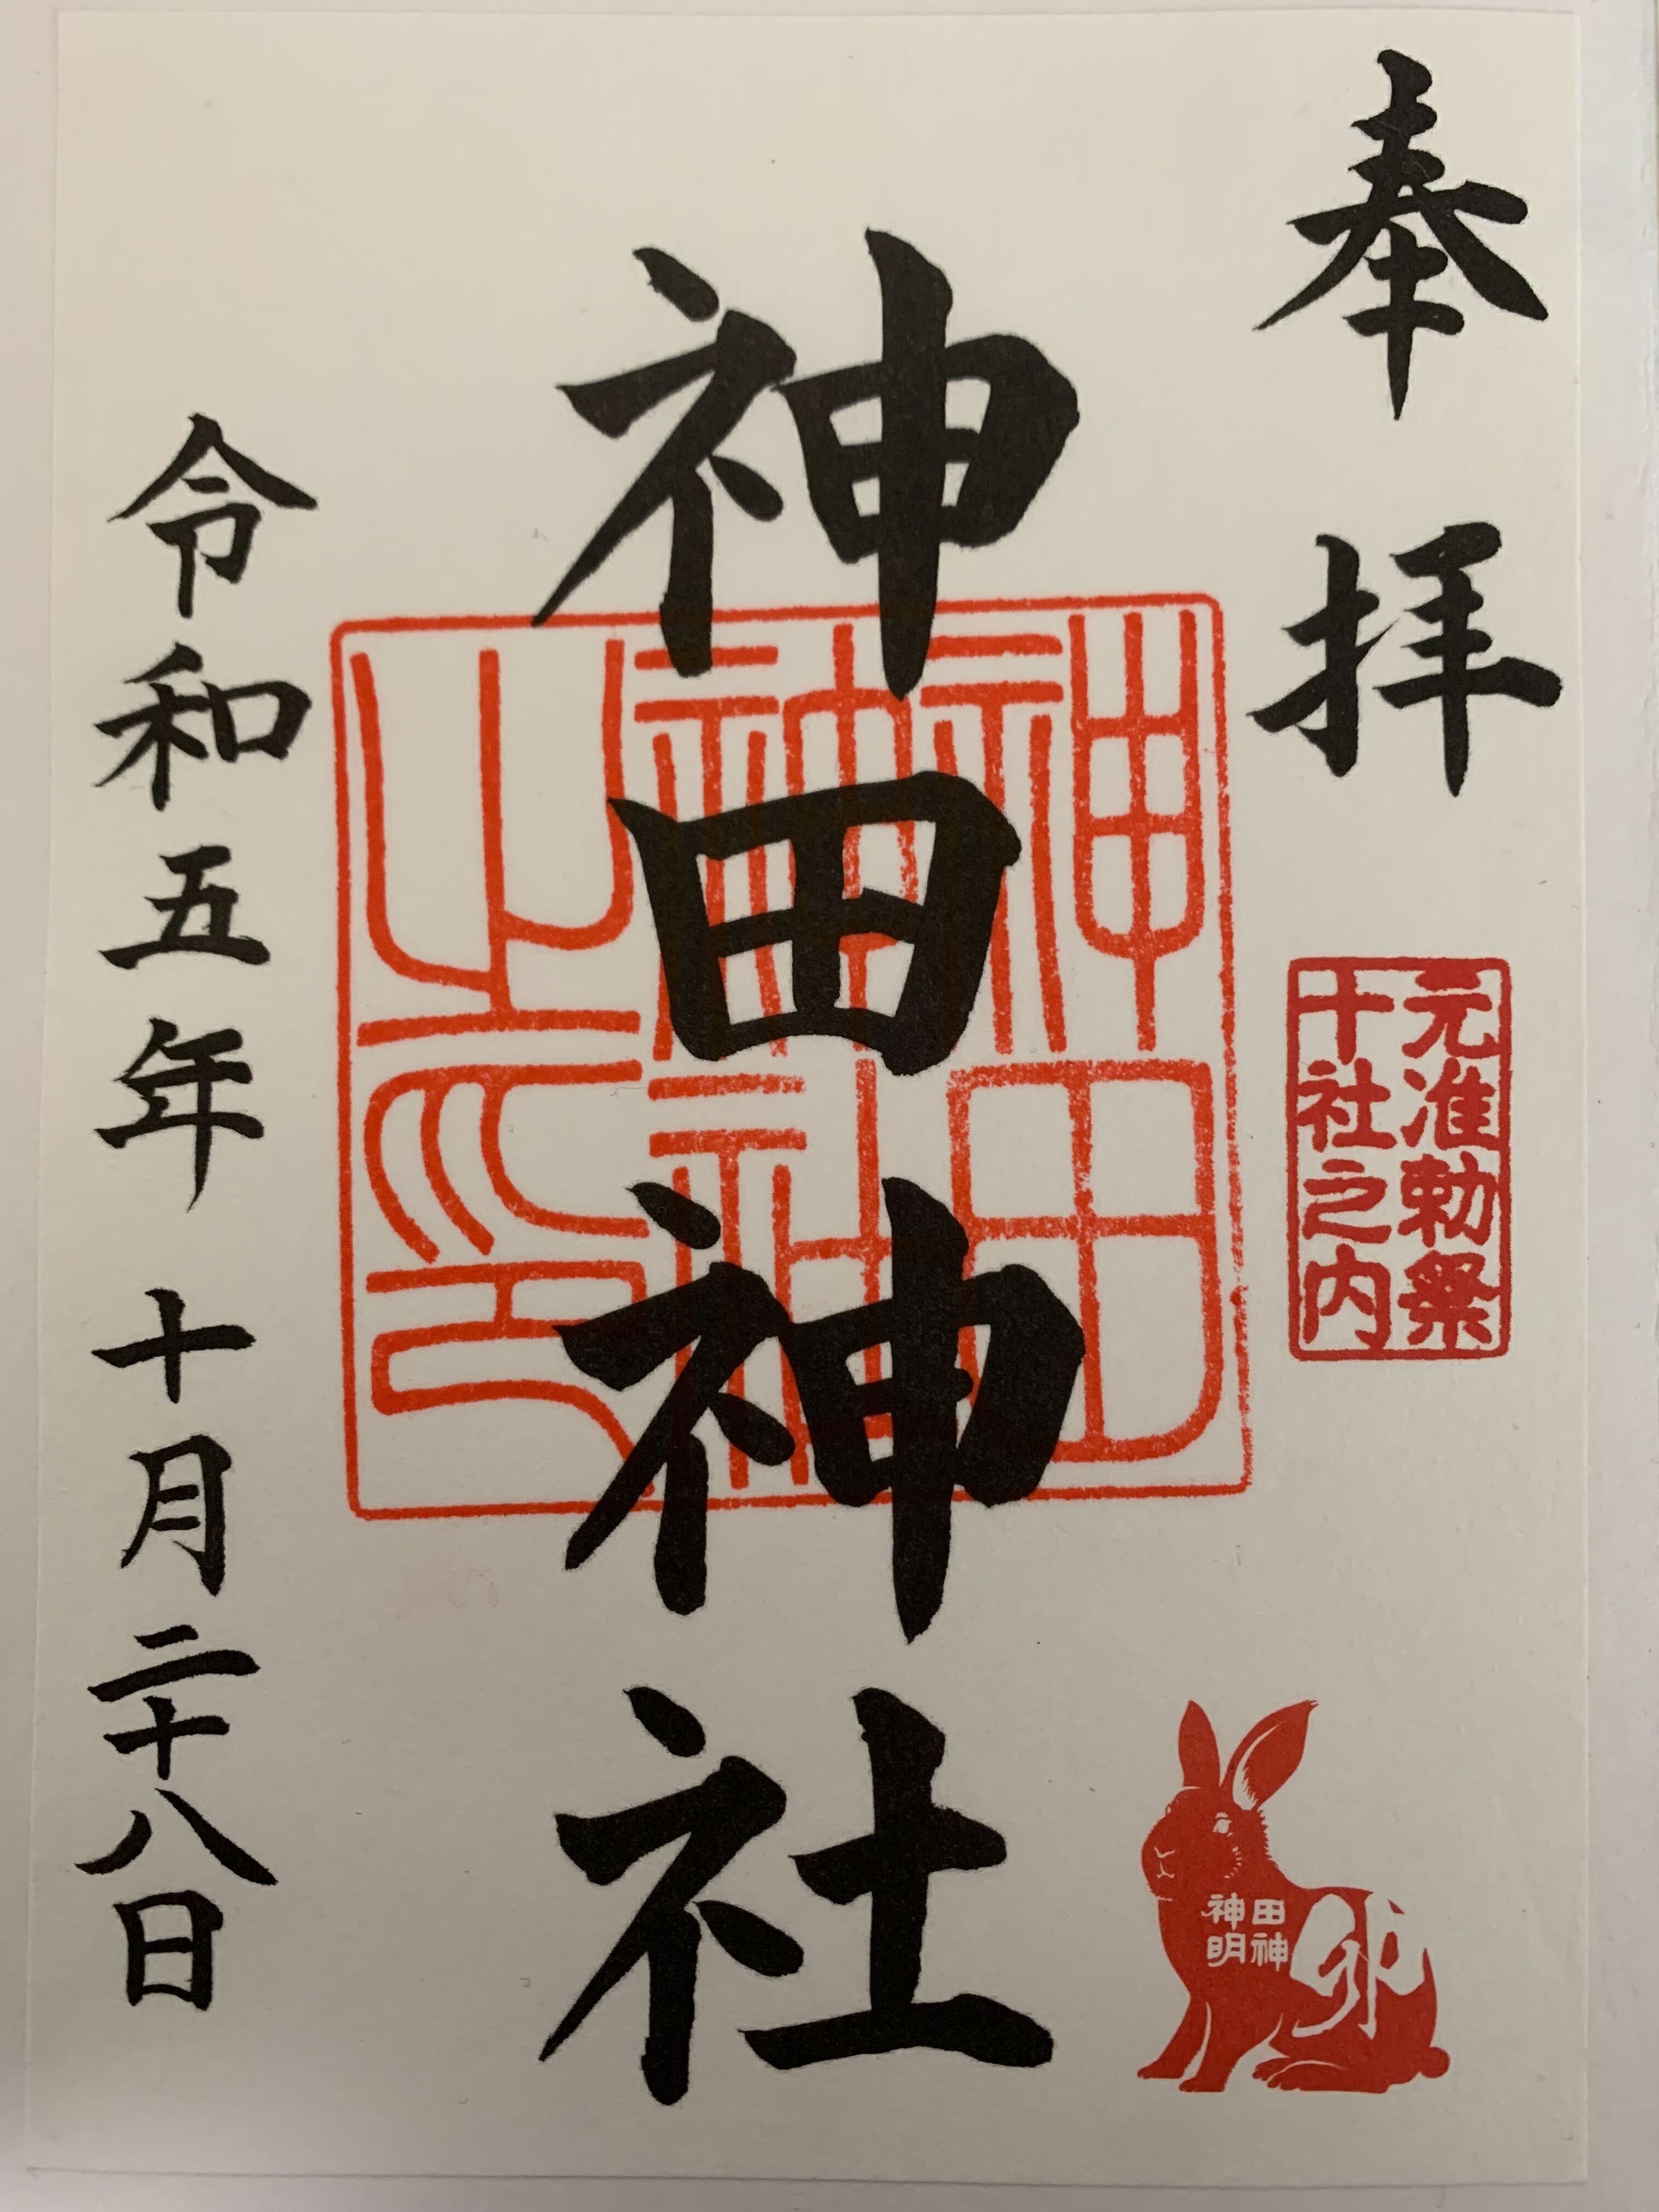 奉拝
元准勅祭
十社之内
田神
神明
卯
神田神社
神田
神社
之印
令和五年 十月二十八日